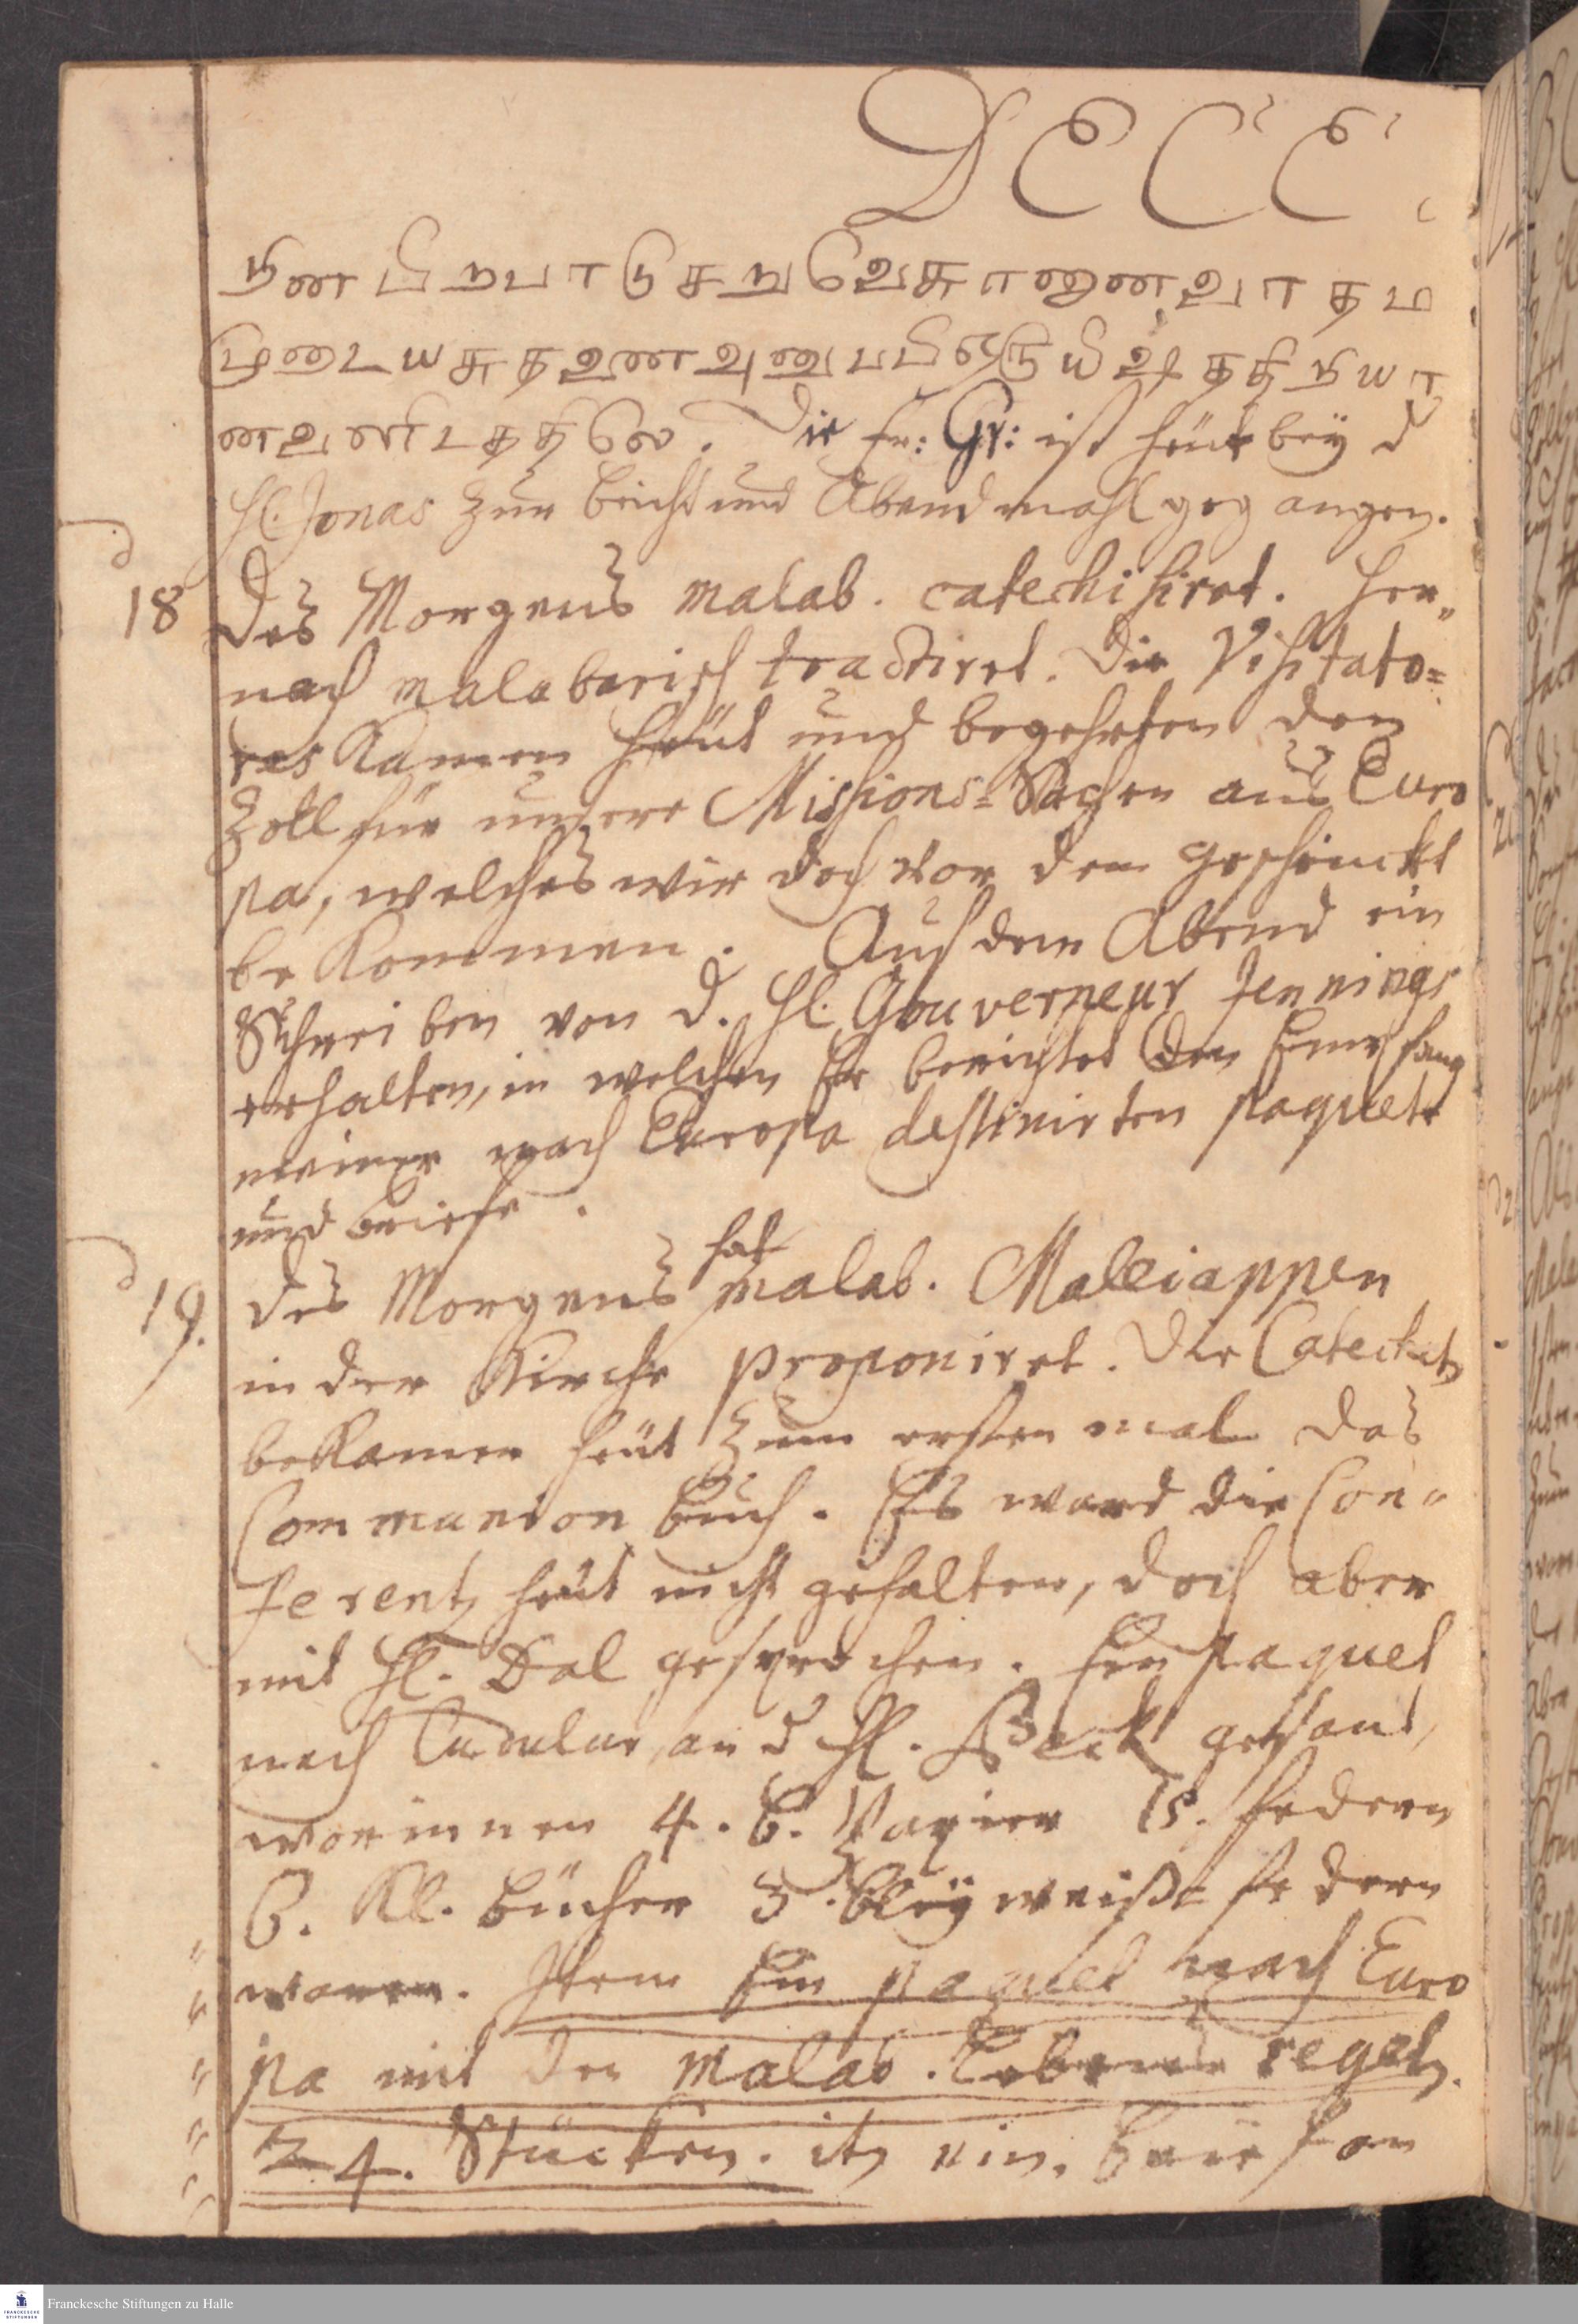 DECE
Die Fr: Gr: ist heüt beÿ d
H. Jonas zur beicht und Abendmahl gegangen.
18 Des Morgens malab. catechisiret. Her„
nach malabarisch tractiret. Die Visitato=
res kamen heüt und begehrten den
Zoll für unsere Missions-Sachen aus Euro
pa, welches wir doch vor dem geschenckt
bekommen. Auf dem Abend ein
Schreiben von d. H. Gouverneur Jennings
erhalten, in welchen Er berichtet den Empfang
meiner nach Europa destinirten paquete
und briefe.
19. Des Morgens hat malab. Maleiappen
in der Kirche proponiret. Die Catecheten
bekamen heüt zum ersten mal das
Communion buch. Es ward die Con„
ferentz heüt nicht gehalten, doch aber
mit H. Dal gesprochen. Ein paquet
nach Cudulur, an d H. Beck gesant,
worinnen 4. B. Papier 15. federn
6. Kl. bücher 3. bleÿweiße federn
waren. Item Ein paquet nach Euro
pa mit den malab. Lebens regeln
24. Stücken. itz ein. brief an
Franckesche Stiftungen zu Halle